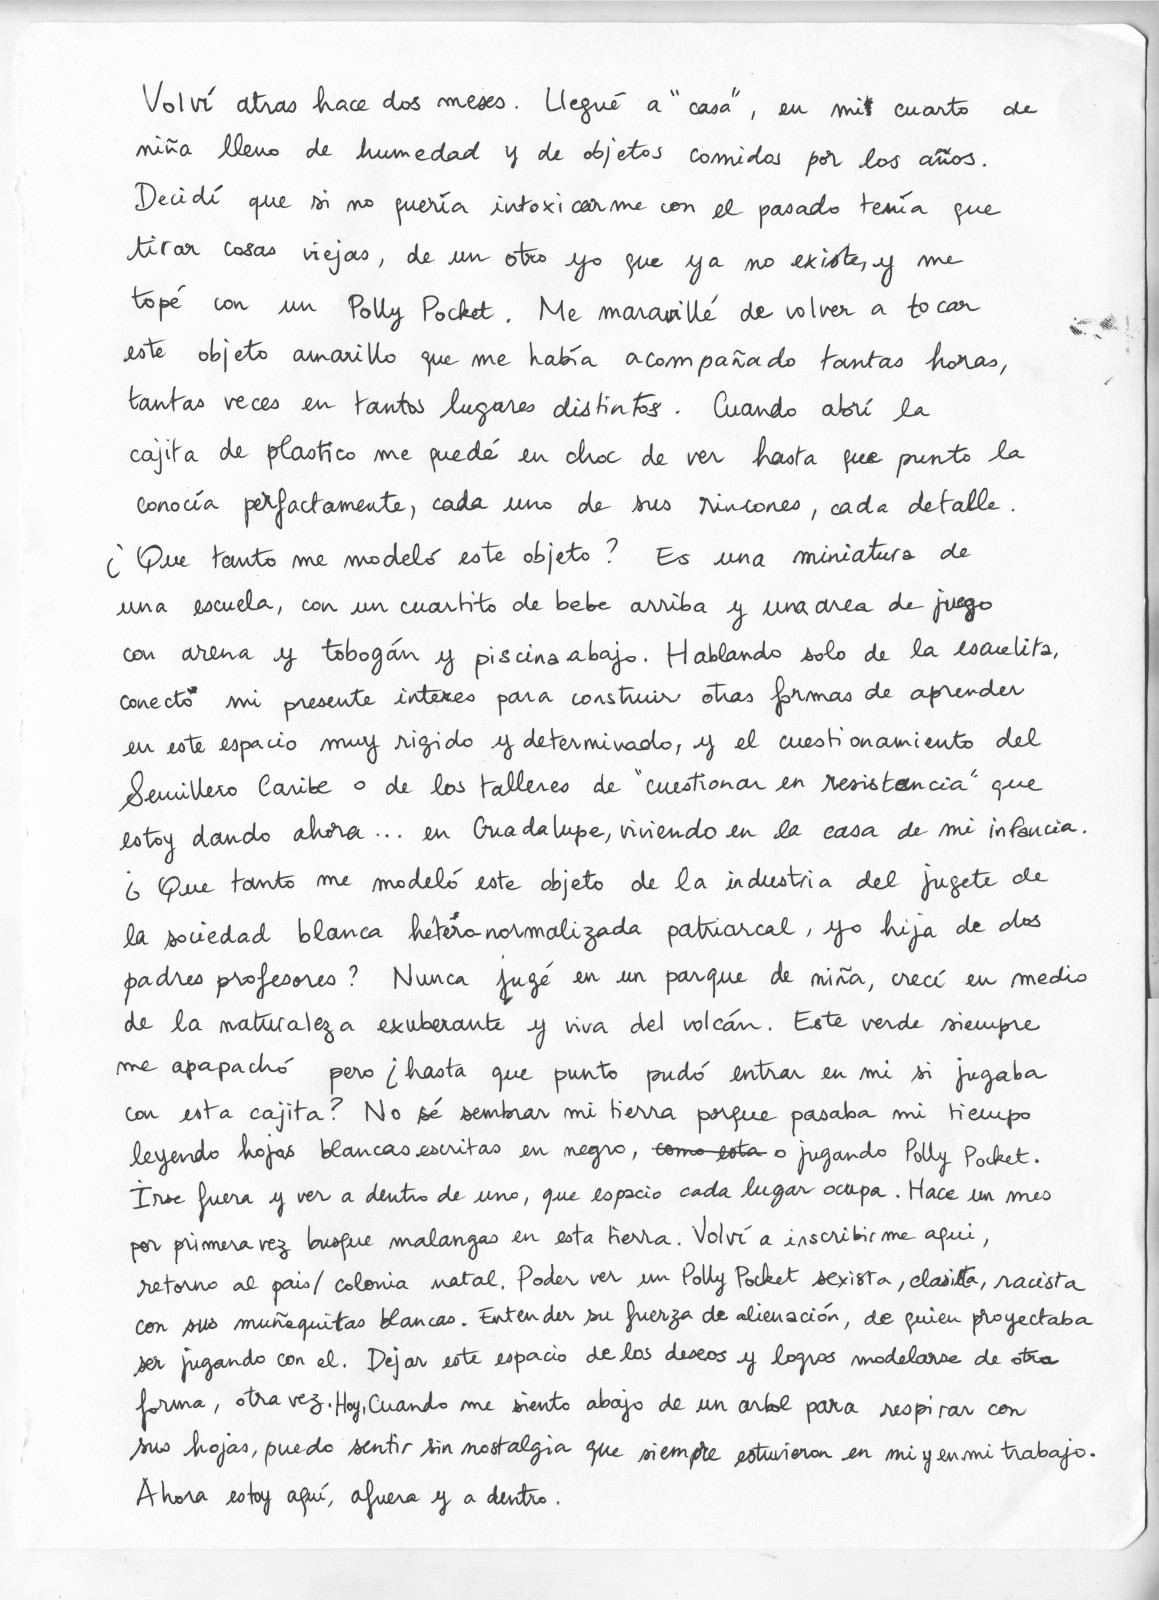 Volví atras hace dos meses. Llegué a "casa", en mi cuarto de
niña lleno de humedad y de objetos comidos por los años.
Decidí que si no quería intoxicarme con el pasado tenía que
tirar cosas viejas, de un otro yo que ya no existe, y me
topé con un Polly Pocket. Me maravillé de volver a tocar
este objeto amarillo que me había acompañado tantas horas,
tantas veces en tantos lugares distintos. Cuando abrí la
cajita de plastico me quedé en choc de ver hasta que punto la
conocía perfactamente, cada uno de sus rincones, cada detalle.
¿Que tanto me modeló este objeto? Es una miniatura de
una escuela, con un cuartito de bebe arriba y una area de juego
con arena y tobogán y piscina abajo. Hablando solo de la escuelita,
conecto mi presente interes para construir otras formas de aprender
en este espacio muy rigido y determinado, y el cuestionamiento del
Semillero Caribe o de los talleres de "cuestionar en resistencia" que
estoy dando ahora... en Guadalupe, viviendo en la casa de mi infancia.
¿Que tanto me modeló este objeto de la industria del jugete de
la sociedad blanca hétéro-normalizada patriarcal, yo hija de dos
padres profesores? Nunca jugé en un parque de niña, crecí en medio
de la naturaleza exuberante y viva del volcán. Este verde siempre
me apapachó pero ¿hasta que punto pudó entrar en mi si jugaba
con esta cajita? No sé sembrar mi tierra porque pasaba mi tiempo
leyendo hojas blancas escritas en negro, como esta o jugando Polly Pocket.
Irse fuera y ver a dentro de uno, que espacio cada lugar ocupa. Hace un mes
por primera vez busque malangas en esta tierra. Volví a inscribirme aqui,
retorno al pais/colonia natal. Poder ver un Polly Pocket sexista, clasista, racista
con sus muñequitas blancas. Entender su fuerza de alienación, de quien proyectaba
ser jugando con el. Dejar este espacio de los deseos y logros modelarse de otra
forma, otra vez. Hoy, Cuando me siento abajo de un arbol para respirar con
sus hojas, puedo sentir sin nostalgia que siempre estuvieron en mi y en mi trabajo.
Ahora estoy aquí, afuera y a dentro.